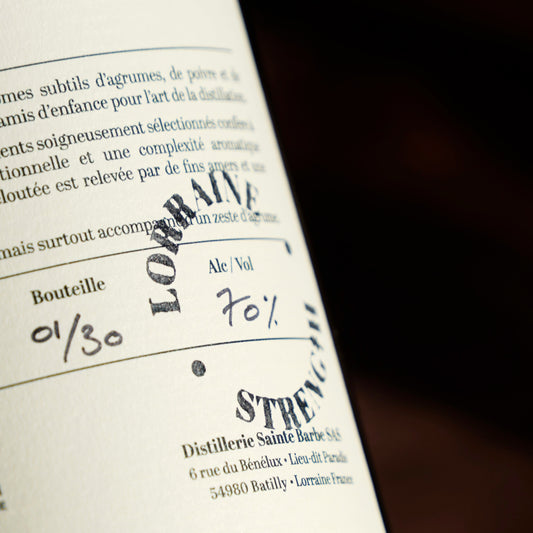 omes subtils d'agrumes, de poivre et de
amis d'enfance pour l'art de la distillation.
ents soigneusement sélectionnés confère
tionnelle et une complexité aromatique
loutée est relevée par de fins amers et une
mais surtout accompagné d'un zeste d'agrume.
LORRAINE
Bouteille
Alc / Vol
01/30
70%
STRENGTH
Distillerie Sainte Barbe SAS
6 rue du Bénélux • Lieu-dit Paradis
54980 Batilly • Lorraine France